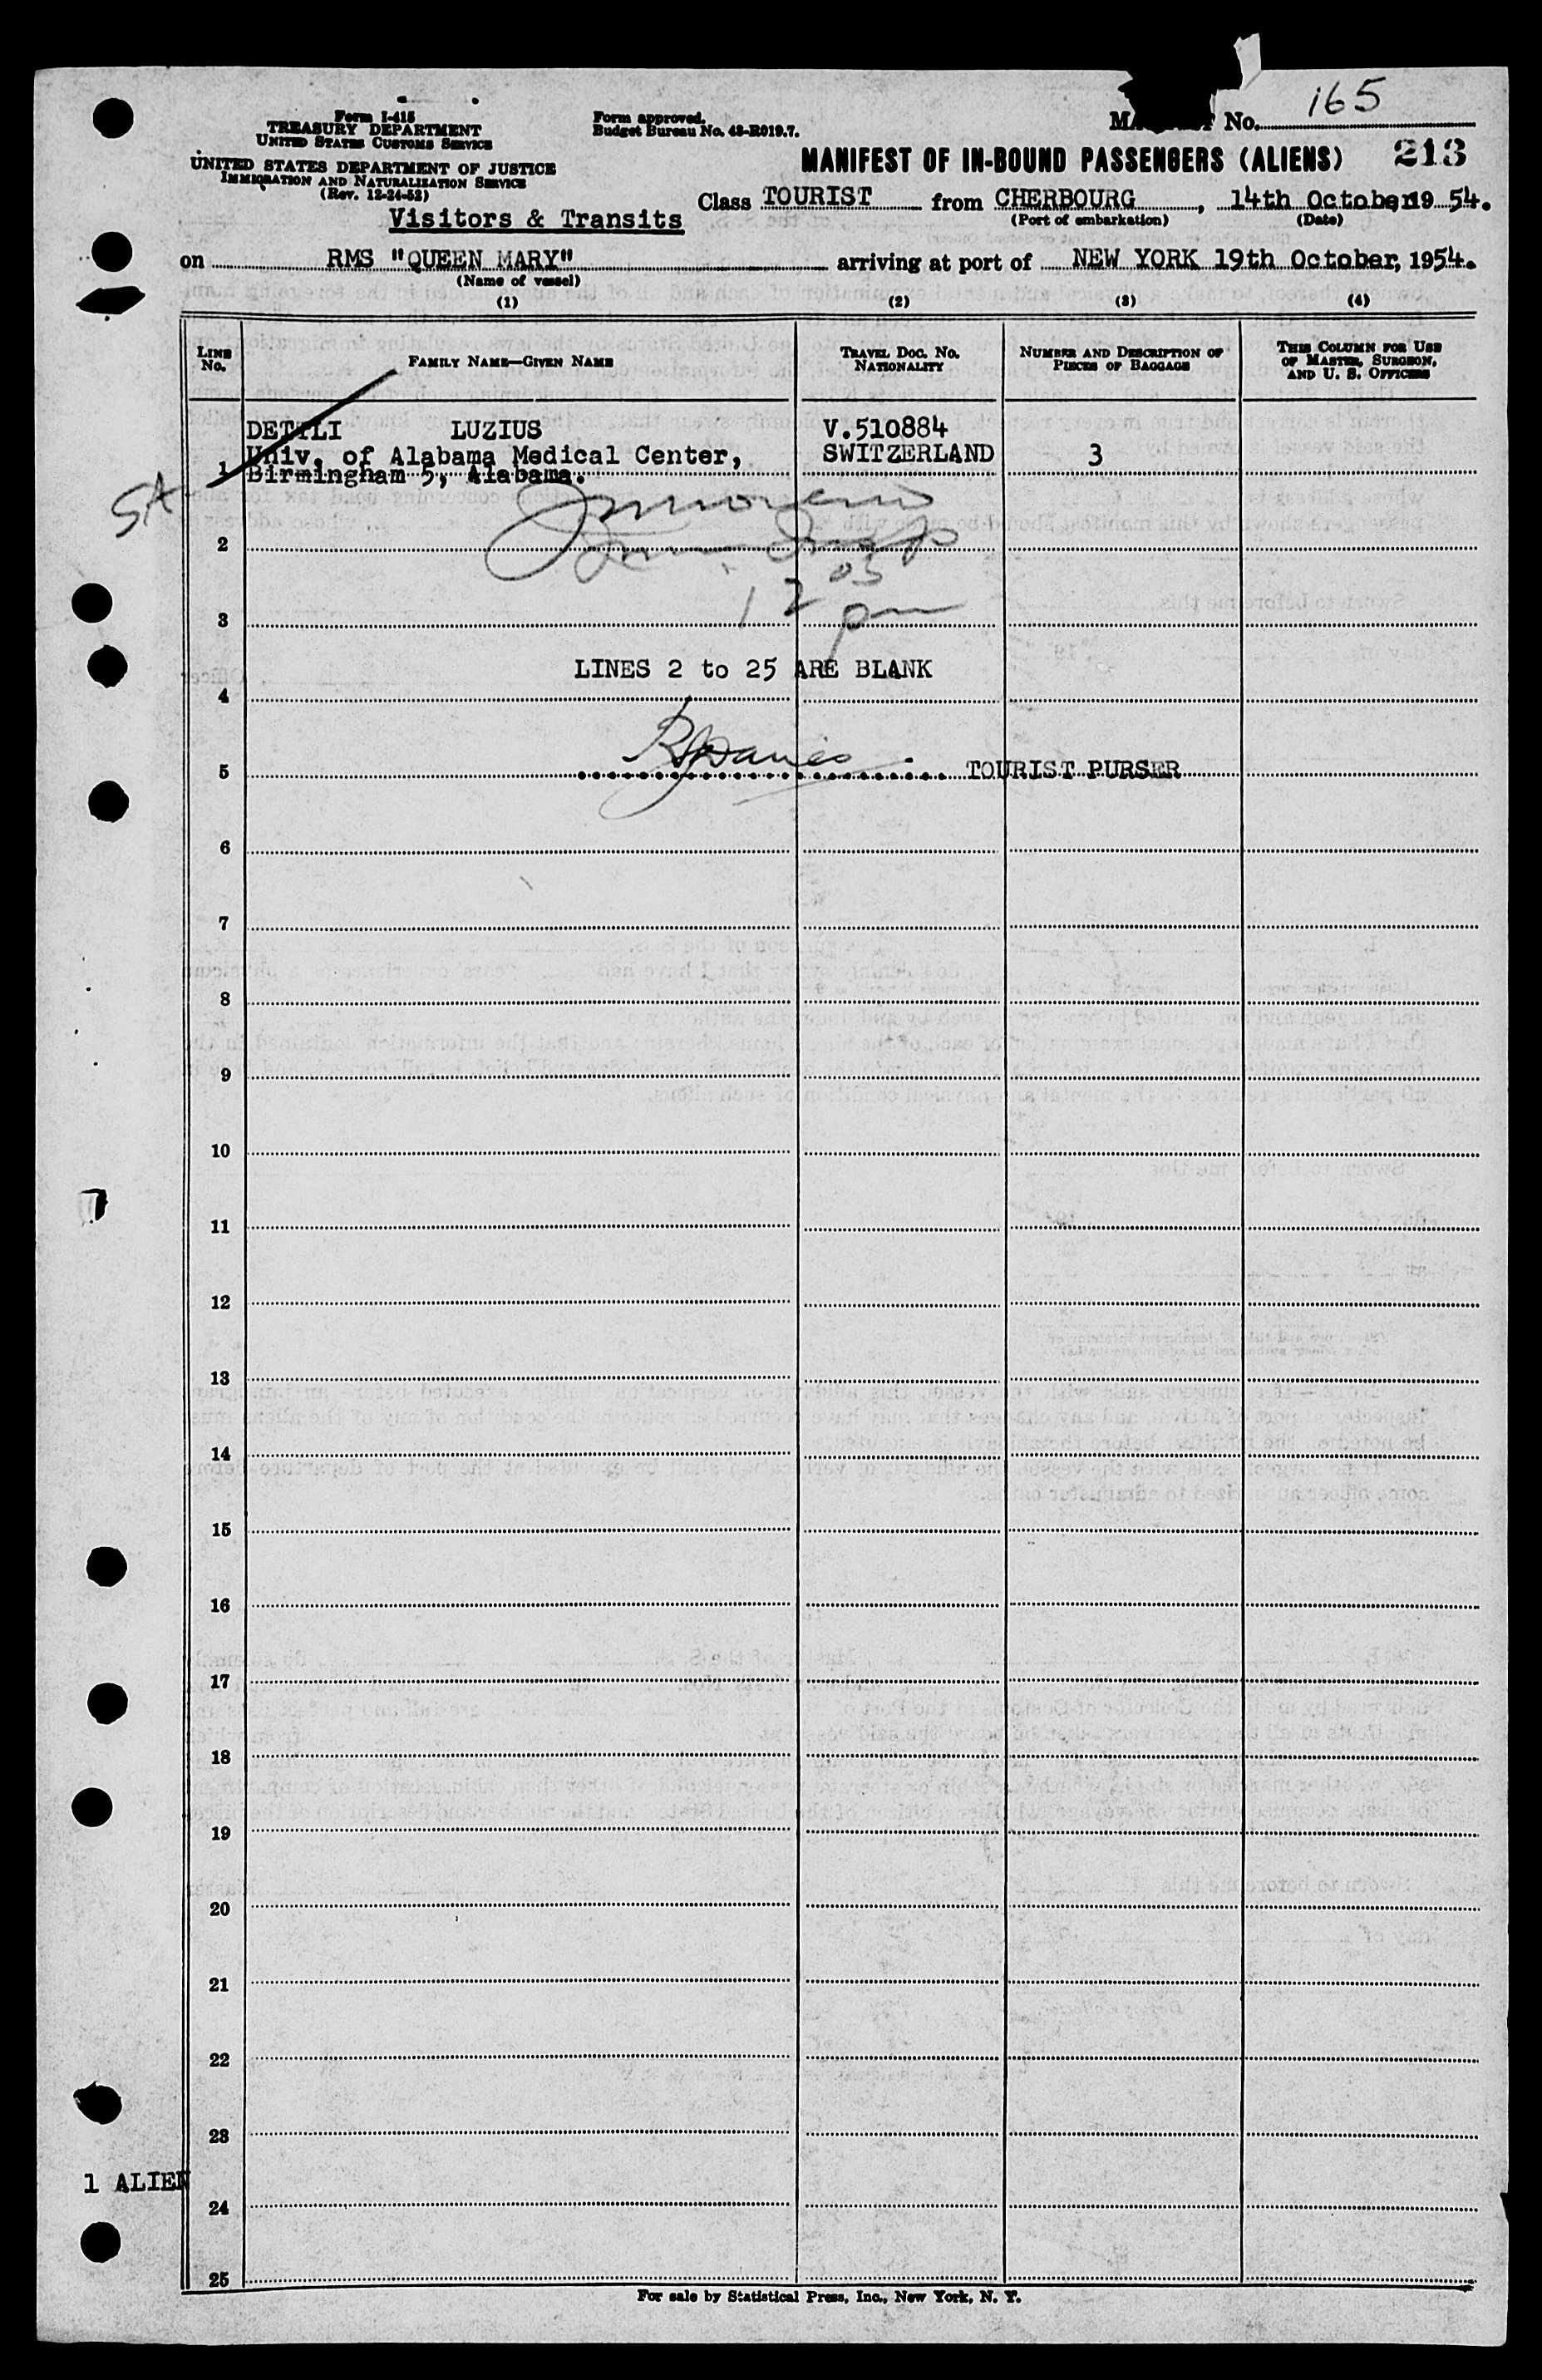 165
Form I-415
TREASURY DEPARTMENT
UNITED STATES CUSTOMS SERVICE
Form approved.
Budget Bureau No. 43-R019.7.
No.
UNITED STATES DEPARTMENT OF JUSTICE
IMMIGRATION AND NATURALIZATION SERVICE
(Rev. 12-24-52)
MANIFEST OF IN-BOUND PASSENGERS (ALIENS) 213
Visitors & Transits
Class TOURIST from CHERBOURG, 14th October, 19 54.
(Port of embarkation) (Date)
on RMS "QUEEN MARY" arriving at port of NEW YORK 19th October, 1954.
(Name of vessel)
(1) (2) (3) (4)
LINE No.
FAMILY NAME—GIVEN NAME
TRAVEL DOC. NO. NATIONALITY
NUMBER AND DESCRIPTION OF PIECES OF BAGGAGE
THIS COLUMN FOR USE OF MASTER, SURGEON, AND U. S. OFFICERS
DETTLI LUZIUS V.510884
Univ. of Alabama Medical Center, SWITZERLAND 3
1 Birmingham 5, Alabama.
2
12 05
3 pm
LINES 2 to 25 ARE BLANK
4
5 TOURIST PURSER
6
7
8
9
10
11
12
13
14
15
16
17
18
19
20
21
22
23
1 ALIEN
24
25
For sale by Statistical Press, Inc., New York, N. Y.